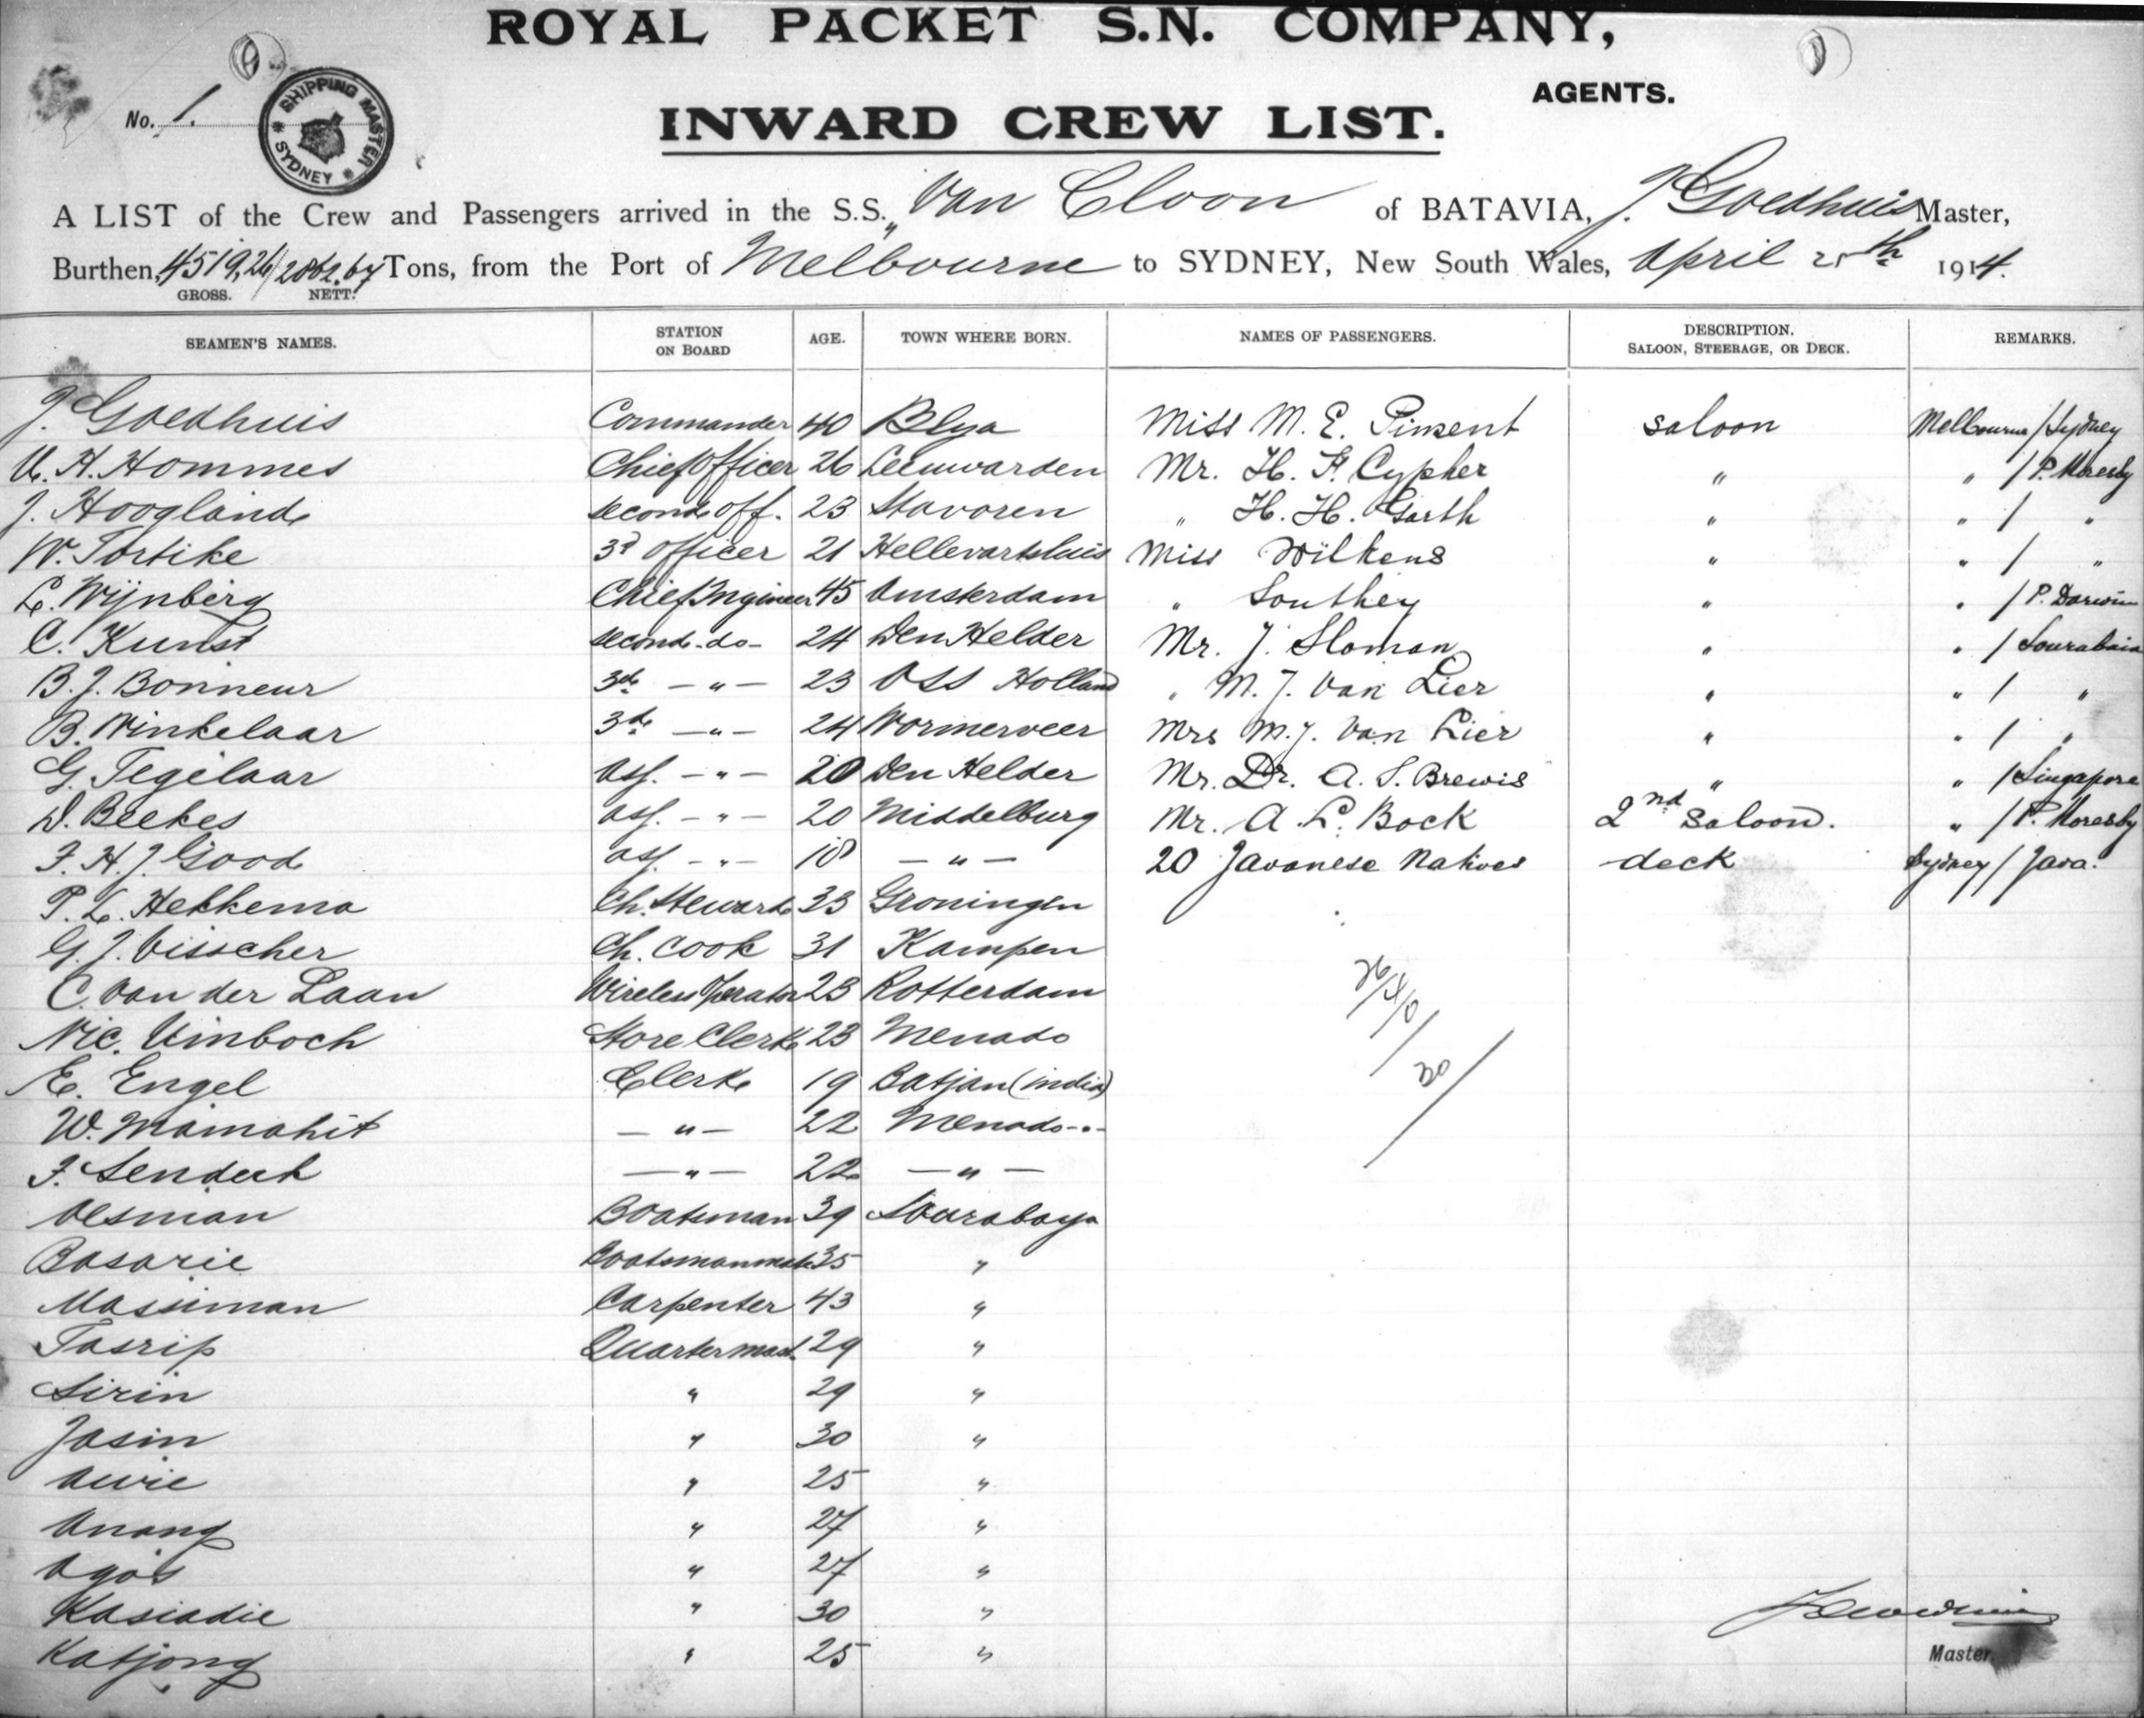 ROYAL PACKET S.N. COMPANY,
AGENTS.
No. 1.
SHIPPING MASTER
SYDNEY
INWARD CREW LIST.
A LIST of the Crew and Passengers arrived in the S.S. „Van Cloon of BATAVIA, J. Goedhuis Master,
Burthen, 4519,26/2862.67 Tons, from the Port of Melbourne to SYDNEY, New South Wales, April 25th 1914.
GROSS. NETT.
SEAMEN'S NAMES. STATION ON BOARD AGE. TOWN WHERE BORN. NAMES OF PASSENGERS. DESCRIPTION. SALOON, STEERAGE, OR DECK. REMARKS.
J. Goedhuis Commander 40 Blya Miss M. E. Pinsent saloon Melbourne/Sydney
H. Hommes Chief Officer 26 Leeuwarden Mr. H. F. Cypher " " / P. Moresby
J. Hoogland second off. 23 Stavoren " H. H. Garth " " / "
W. Tortike 3d Officer 21 Hellevoetsluis Miss Wilkens " " / "
L. Wijnberg Chief Ingineer 45 Amsterdam " Southey " " / P. Darwin
C. Kunst second -do- 24 Den Helder Mr. J. Sloman " " / Sourabaia
B. J. Bonneur 3de — " — 23 Oss Holland " M. J. Van Lier " " / "
B. Winkelaar 3de — " — 24 Wormerveer Mrs M. J. Van Lier " " / "
G. Tegelaar ass. — " — 20 Den Helder Mr. Dr. A. S. Brewis " " / Singapore
D. Beekes ass. — " — 20 Middelburg Mr. A. L. Bock 2nd saloon. " / P. Moresby
F. H. J. Good ass. — " — 18 — " — 20 Javanese Natives deck Sydney / Java.
P. L. Hekkema Ch. Steward 33 Groningen
G. J. Visscher Ch. Cook 31 Kampen
C. van der Laan Wireless Operator 23 Rotterdam
26/4/0
Nic. Umboch Store Clerk 23 Menado
E. Engel Clerk 19 Batjan (india)
30
W. Mamahit — " — 22 Menado - " -
F. Sendeck — " — 22 — " —
Oesman Boatsman 39 Sourabaya
Basarie Boatsmanmate 35 "
Massiman Carpenter 43 "
Tasrip Quartermast. 29 "
Sirin " 29 "
Jasin " 30 "
Awie " 25 "
Anang " 27 "
Agos " 27 "
Kasiadie " 30 "
Katjong " 25 "
Master.